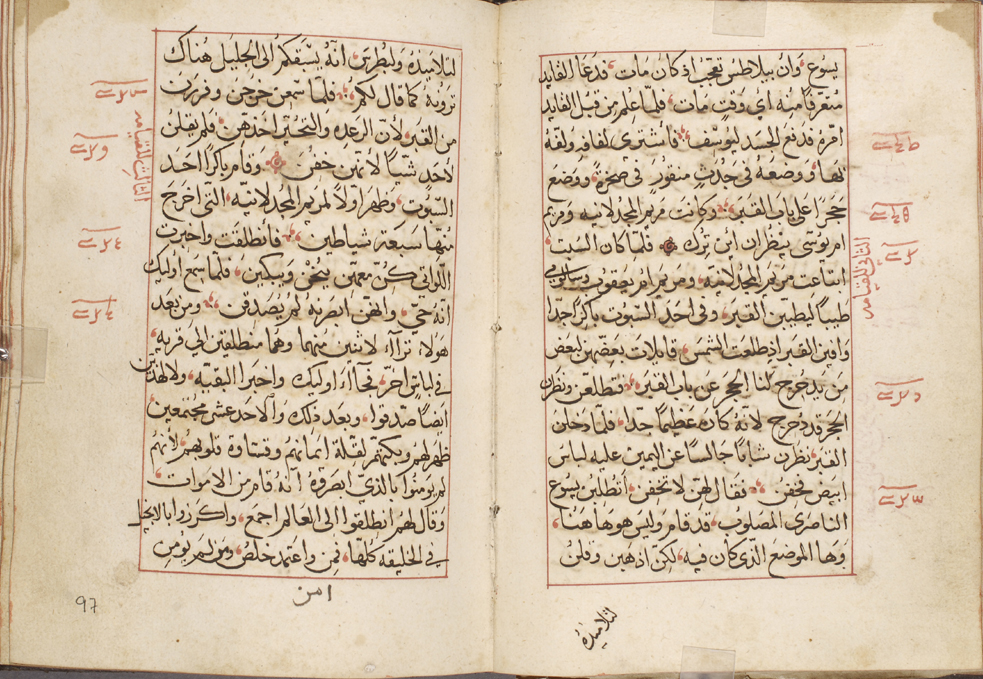 يسوع وان بيلاطس تعجب اذ كان مات فدعا القايد
متعرفا منه اي وقت مات فلما علم من قبل القايد
امره فدفع الجسد ليوسف فاشترى لفافه ولفه
بها ووضعه في جدث منقور في صخرة ووضع
حجرا على باب القبر وكانت مريم المجدلانيه ومريم
ام يوسى ينظران اين ترك فلما كان السبت
ابتاعت مريم المجدلانيه ومريم ام يعقوب وسالومي
طيبا ليطيبن القبر وفي احد السبوت باكرا جدا
وافين القبر اذ طلعت الشمس قايلات بعضهن لبعض
من يدحرج لنا الحجر عن باب القبر فتطلعن ونظرن
الحجر قد دحرج لانه كان عظيما جدا فلما دخلن
القبر نظرن شابا جالسا عن اليمين عليه لباس
ابيض فخفن فقال لهن لا تخفن اتطلبن يسوع
الناصري المصلوب قد قام وليس هو هاهنا
وها الموضع الذي كان فيه لكن اذهبن وقلن
لتلاميذه
الثاني للقيامه
لتلاميذه ولبطرس انه يسبقكم الى الجليل هناك
ترونه كما قال لكم فلما سمعن خرجن وفررن
من القبر لان الرعده والتحير اخذهن فلم يقلن
لاحد شيا لانهن خفن وقام باكرا احد
السبوت وظهر اولا لمريم المجدلانيه التي اخرج
منها سبعة شياطين فانطلقت واخبرت
اللواتي كن معهن ينحن ويبكين فلما سمع اوليك
انه حي وانهن ابصرنه لم يصدقن ومن بعد
هولاء تراآء لاثنين منهما وهما منطلقين الى قريه
في لباس اخر فجآاء اوليك واخبرا البقيه ولا لهذين
ايضا صدقوا وبعد ذلك والاحد عشر مجتمعين
ظهر لهم وبكتهم لقلة ايمانهم وقساوة قلوبهم لانهم
لم يومنوا بالذي ابصروه انه قام من الاموات
وقال لهم انطلقوا الى العالم اجمع واكرزوا بالانجيل
في الخليقه كلها فمن واعتمد خلص ومن لم يومن
امن
الثالث للقيامه
97